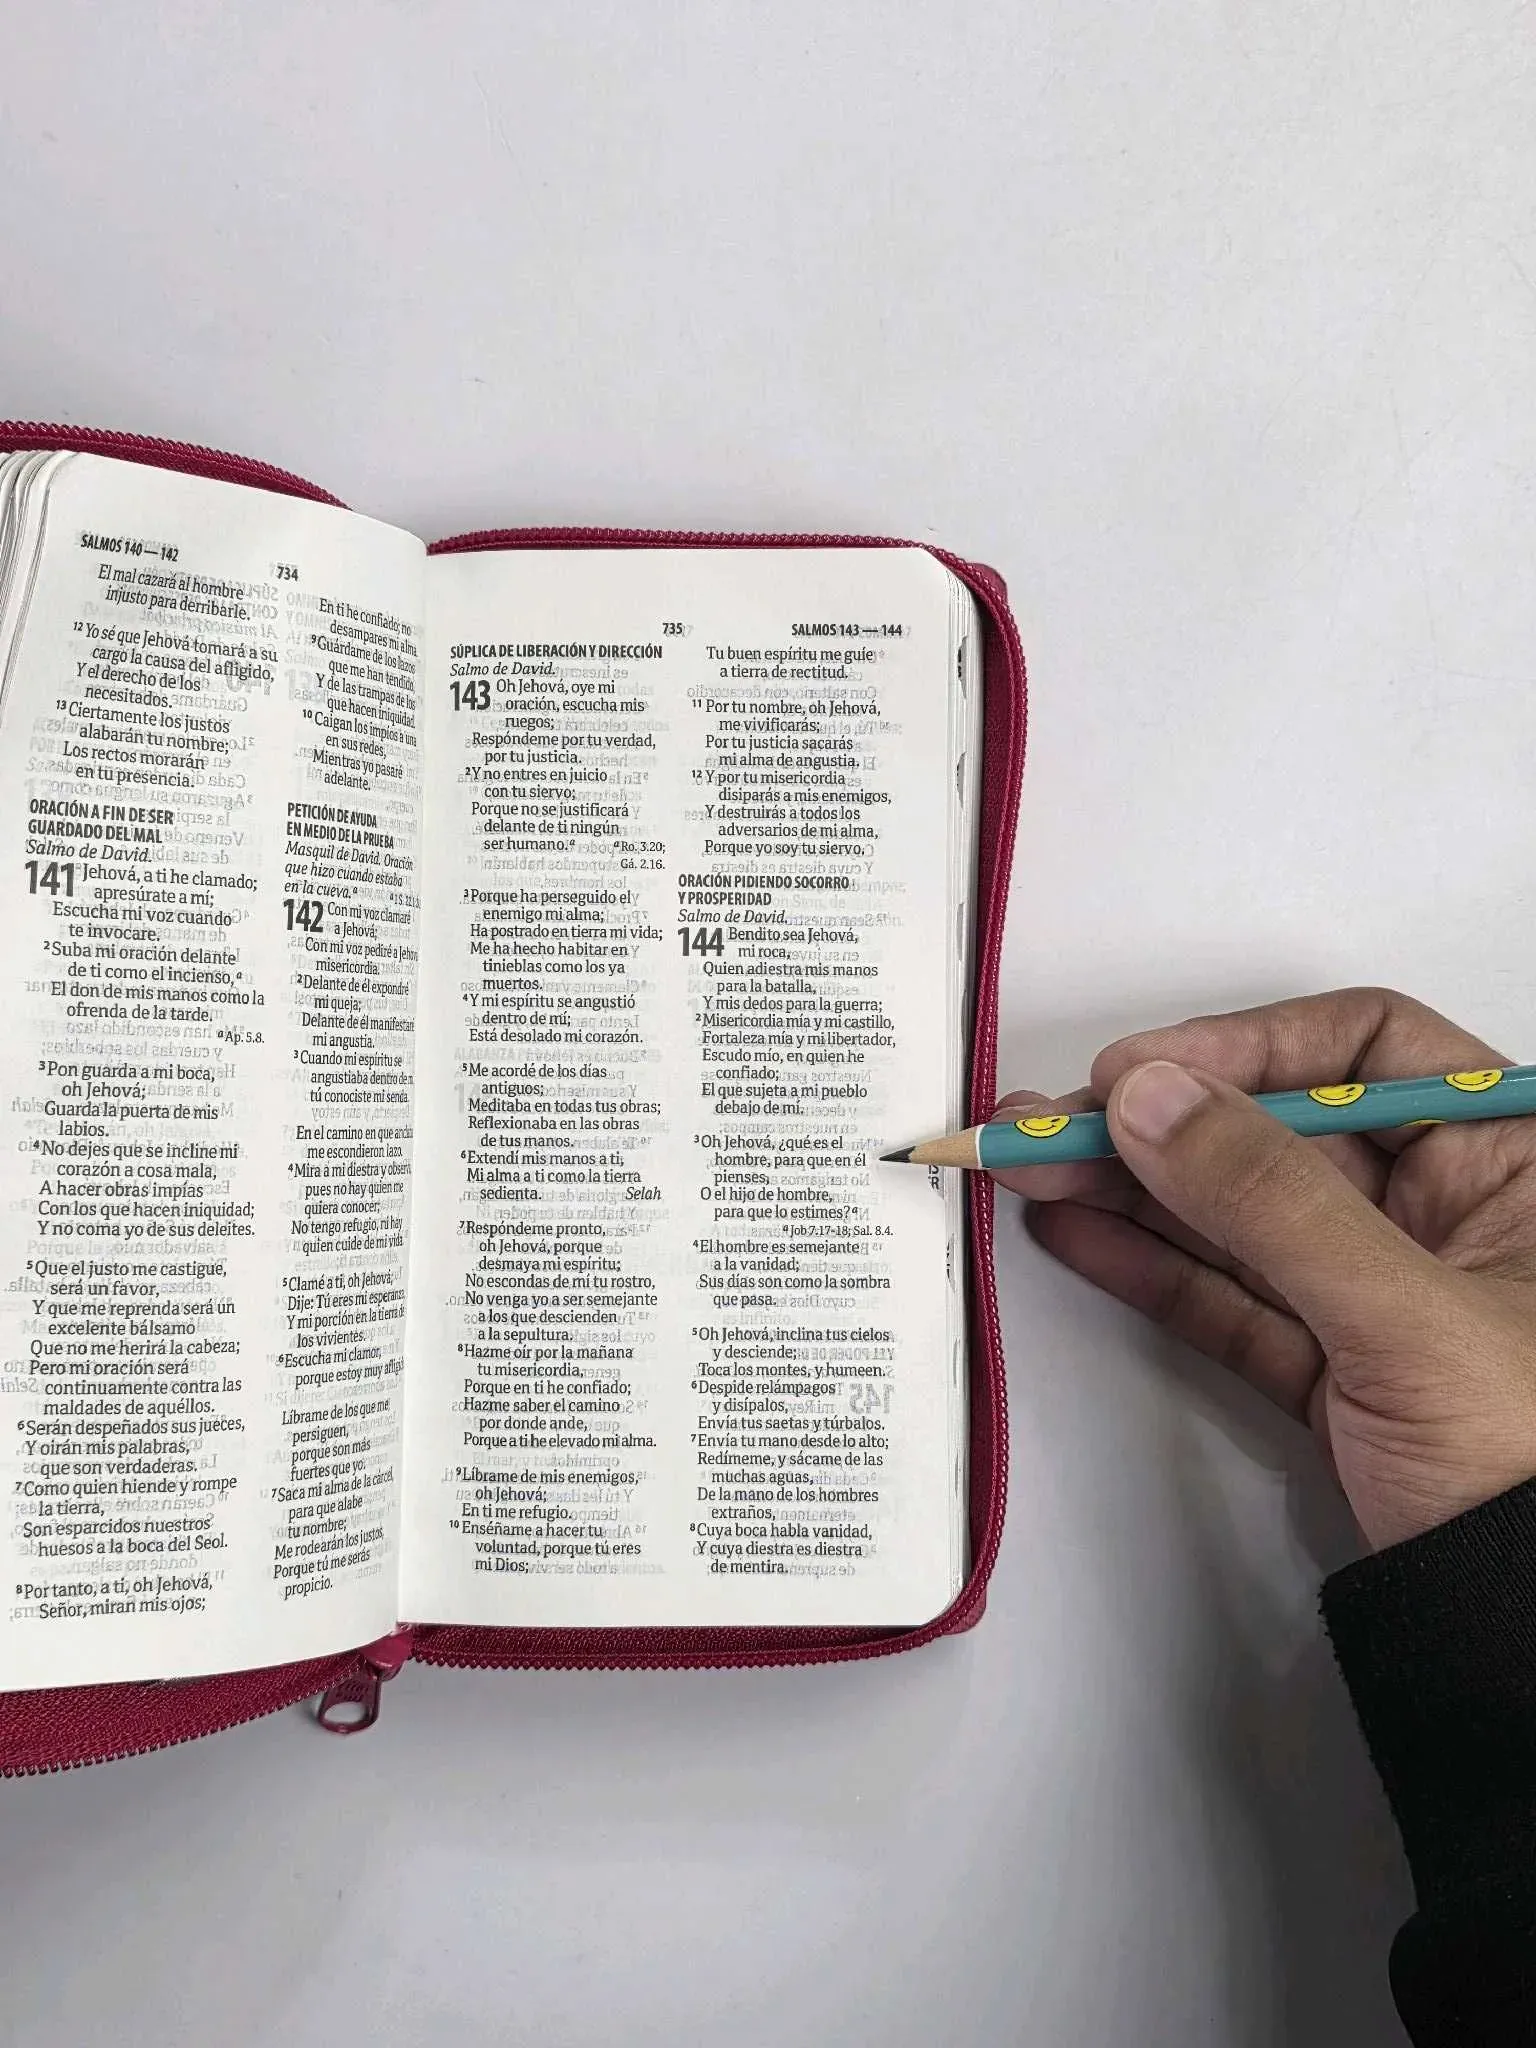 SALMOS 140—142
734
El mal cazará al hombre
injusto para derribarle.
12 Yo sé que Jehová tomará a su
cargo la causa del afligido,
Y el derecho de los
necesitados.
13 Ciertamente los justos
alabarán tu nombre;
Los rectos morarán
en tu presencia.
ORACIÓN A FIN DE SER
GUARDADO DEL MAL
Salmo de David.
141 Jehová, a ti he clamado;
apresúrate a mí;
Escucha mi voz cuando
te invocare.
2 Suba mi oración delante
de ti como el incienso,a
El don de mis manos como la
ofrenda de la tarde.
a Ap. 5.8.
3 Pon guarda a mi boca,
oh Jehová;
Guarda la puerta de mis
labios.
4 No dejes que se incline mi
corazón a cosa mala,
A hacer obras impías
Con los que hacen iniquidad;
Y no coma yo de sus deleites.
5 Que el justo me castigue,
será un favor,
Y que me reprenda será un
excelente bálsamo
Que no me herirá la cabeza;
Pero mi oración será
continuamente contra las
maldades de aquéllos.
6 Serán despeñados sus jueces,
Y oirán mis palabras,
que son verdaderas.
7 Como quien hiende y rompe
la tierra,
Son esparcidos nuestros
huesos a la boca del Seol.
8 Por tanto, a ti, oh Jehová,
Señor, miran mis ojos;
En ti he confiado; no
desampares mi alma
9 Guárdame de los lazos
que me han tendido,
Y de las trampas de los
que hacen iniquidad.
10 Caigan los impíos a una
en sus redes,
Mientras yo pasaré
adelante.
PETICIÓN DE AYUDA
EN MEDIO DE LA PRUEBA
Masquil de David. Oración
que hizo cuando estaba
en la cueva.a
142 Con mi voz clamaré
a Jehová;
Con mi voz pediré a
misericordia.
2 Delante de él expondré
mi queja;
Delante de él
mi angustia.
3 Cuando mi espíritu se
angustiaba dentro de
tú conociste mi senda.
En el camino en que
me escondieron lazo.
4 Mira a mi diestra y
pues no hay quien me
quiera conocer;
No tengo refugio, ni hay
quien cuide de mi vida
5 Clamé a ti, oh Jehová;
Dije: Tú eres mi esperanza,
Y mi porción en la tierra de
los vivientes.
6 Escucha mi clamor,
porque estoy muy
Líbrame de los que me
persiguen,
porque son más
fuertes que yo.
7 Saca mi alma de la cárcel,
para que alabe
tu nombre;
Me rodearán los justos,
Porque tú me serás
propicio.
735
SALMOS 143—144
SÚPLICA DE LIBERACIÓN Y DIRECCIÓN
Salmo de David.
143 Oh Jehová, oye mi
oración, escucha mis
ruegos;
Respóndeme por tu verdad,
por tu justicia.
2 Y no entres en juicio
con tu siervo;
Porque no se justificará
delante de ti ningún
ser humano.a a Ro. 3.20;
Gá. 2.16.
3 Porque ha perseguido el
enemigo mi alma;
Ha postrado en tierra mi vida;
Me ha hecho habitar en
tinieblas como los ya
muertos.
4 Y mi espíritu se angustió
dentro de mí;
Está desolado mi corazón.
5 Me acordé de los días
antiguos;
Meditaba en todas tus obras;
Reflexionaba en las obras
de tus manos.
6 Extendí mis manos a ti,
Mi alma a ti como la tierra
sedienta. Selah
7 Respóndeme pronto,
oh Jehová, porque
desmaya mi espíritu;
No escondas de mí tu rostro,
No venga yo a ser semejante
a los que descienden
a la sepultura.
8 Hazme oír por la mañana
tu misericordia,
Porque en ti he confiado;
Hazme saber el camino
por donde ande,
Porque a ti he elevado mi alma.
9 Líbrame de mis enemigos,
oh Jehová;
En ti me refugio.
10 Enséñame a hacer tu
voluntad, porque tú eres
mi Dios;
Tu buen espíritu me guíe
a tierra de rectitud.
11 Por tu nombre, oh Jehová,
me vivificarás;
Por tu justicia sacarás
mi alma de angustia.
12 Y por tu misericordia
disiparás a mis enemigos,
Y destruirás a todos los
adversarios de mi alma,
Porque yo soy tu siervo.
ORACIÓN PIDIENDO SOCORRO
Y PROSPERIDAD
Salmo de David.
144 Bendito sea Jehová,
mi roca,
Quien adiestra mis manos
para la batalla,
Y mis dedos para la guerra;
2 Misericordia mía y mi castillo,
Fortaleza mía y mi libertador,
Escudo mío, en quien he
confiado;
El que sujeta a mi pueblo
debajo de mí.
3 Oh Jehová, ¿qué es el
hombre, para que en él
pienses,
O el hijo de hombre,
para que lo estimes?a
a Job 7.17-18; Sal. 8.4.
4 El hombre es semejante
a la vanidad;
Sus días son como la sombra
que pasa.
5 Oh Jehová, inclina tus cielos
y desciende;
Toca los montes, y humeen.
6 Despide relámpagos
y disípalos,
Envía tus saetas y túrbalos.
7 Envía tu mano desde lo alto;
Redímeme, y sácame de las
muchas aguas,
De la mano de los hombres
extraños,
8 Cuya boca habla vanidad,
Y cuya diestra es diestra
de mentira.